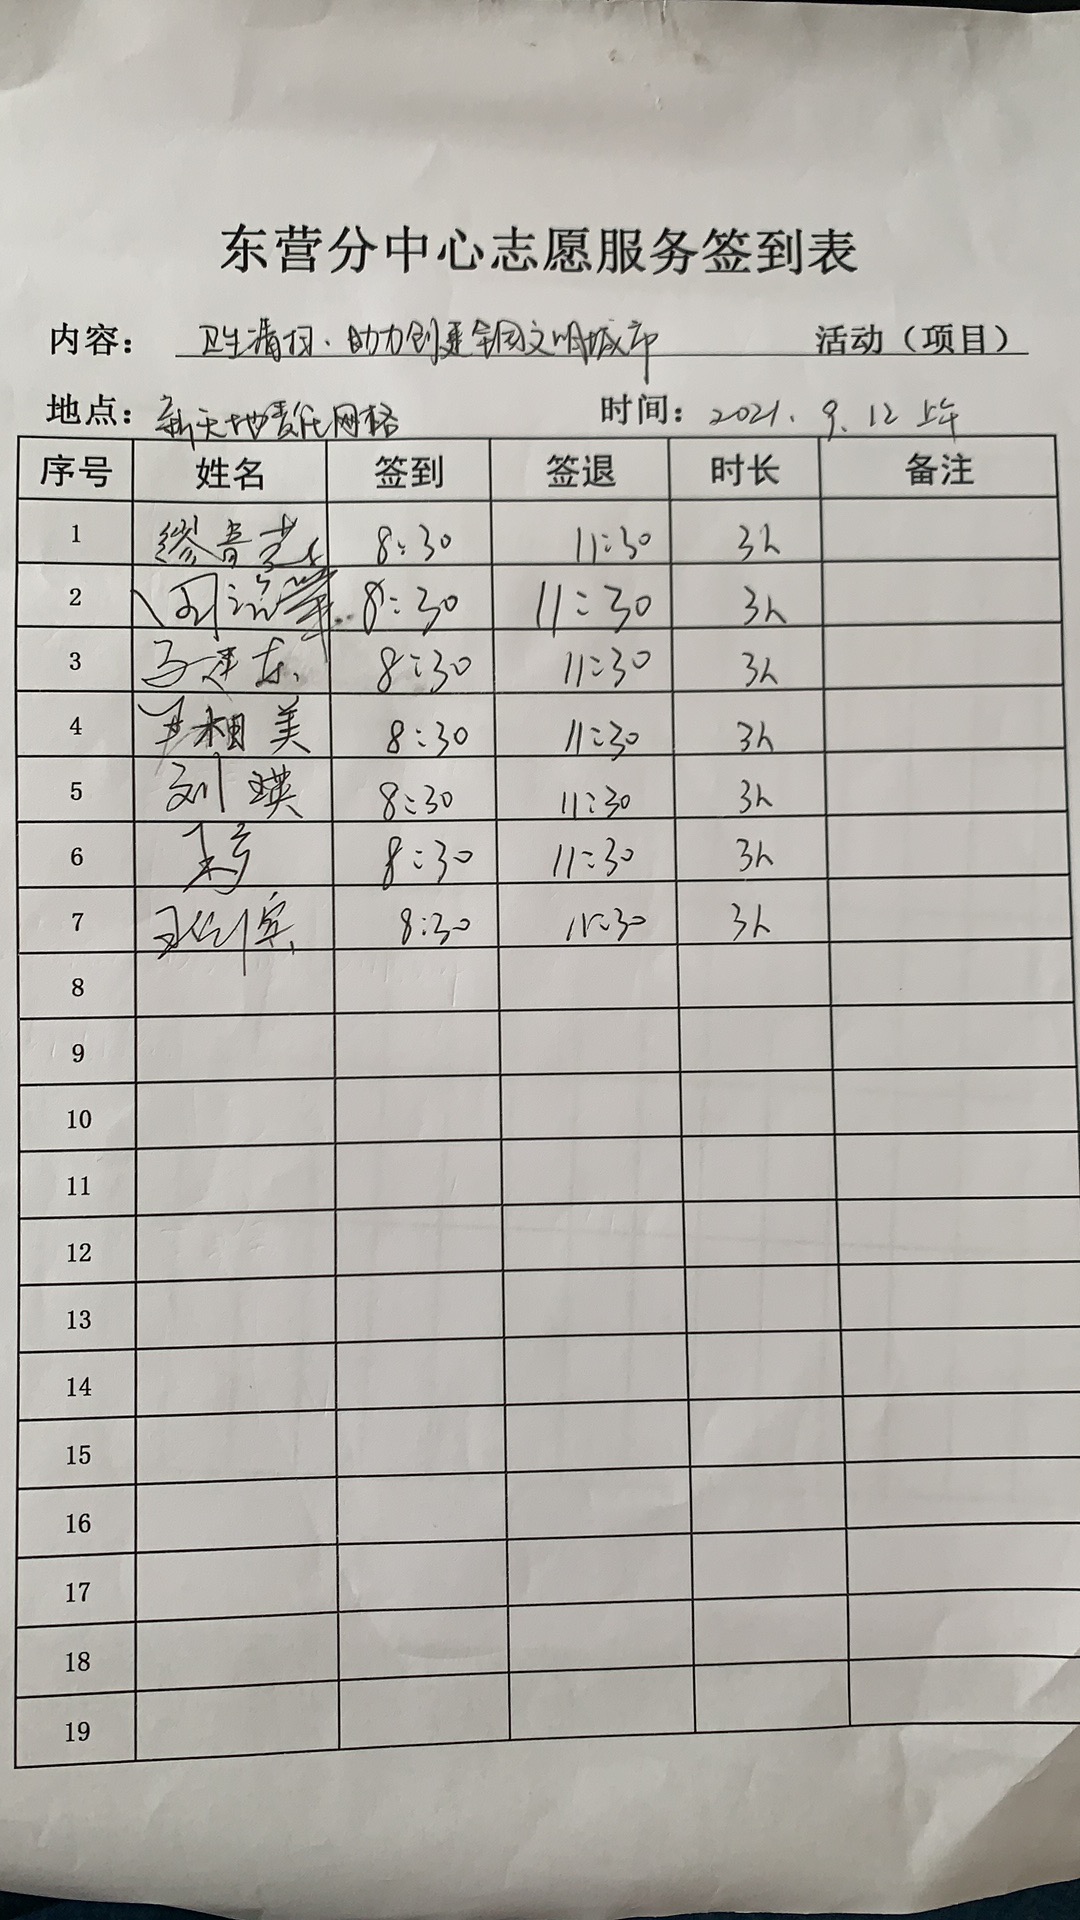 东营分中心志愿服务签到表
内容： 卫生清扫、助力创建全国文明城市 活动（项目）
地点：新天地责任网格 时间：2021.9.12 上午
序号 姓名 签到 签退 时长 备注
1 缪青 8:30 11:30 3h
2 8:30 11:30 3h
3 马建东 8:30 11:30 3h
4 尹相美 8:30 11:30 3h
5 刘瑛 8:30 11:30 3h
6 8:30 11:30 3h
7 8:30 11:30 3h
8
9
10
11
12
13
14
15
16
17
18
19